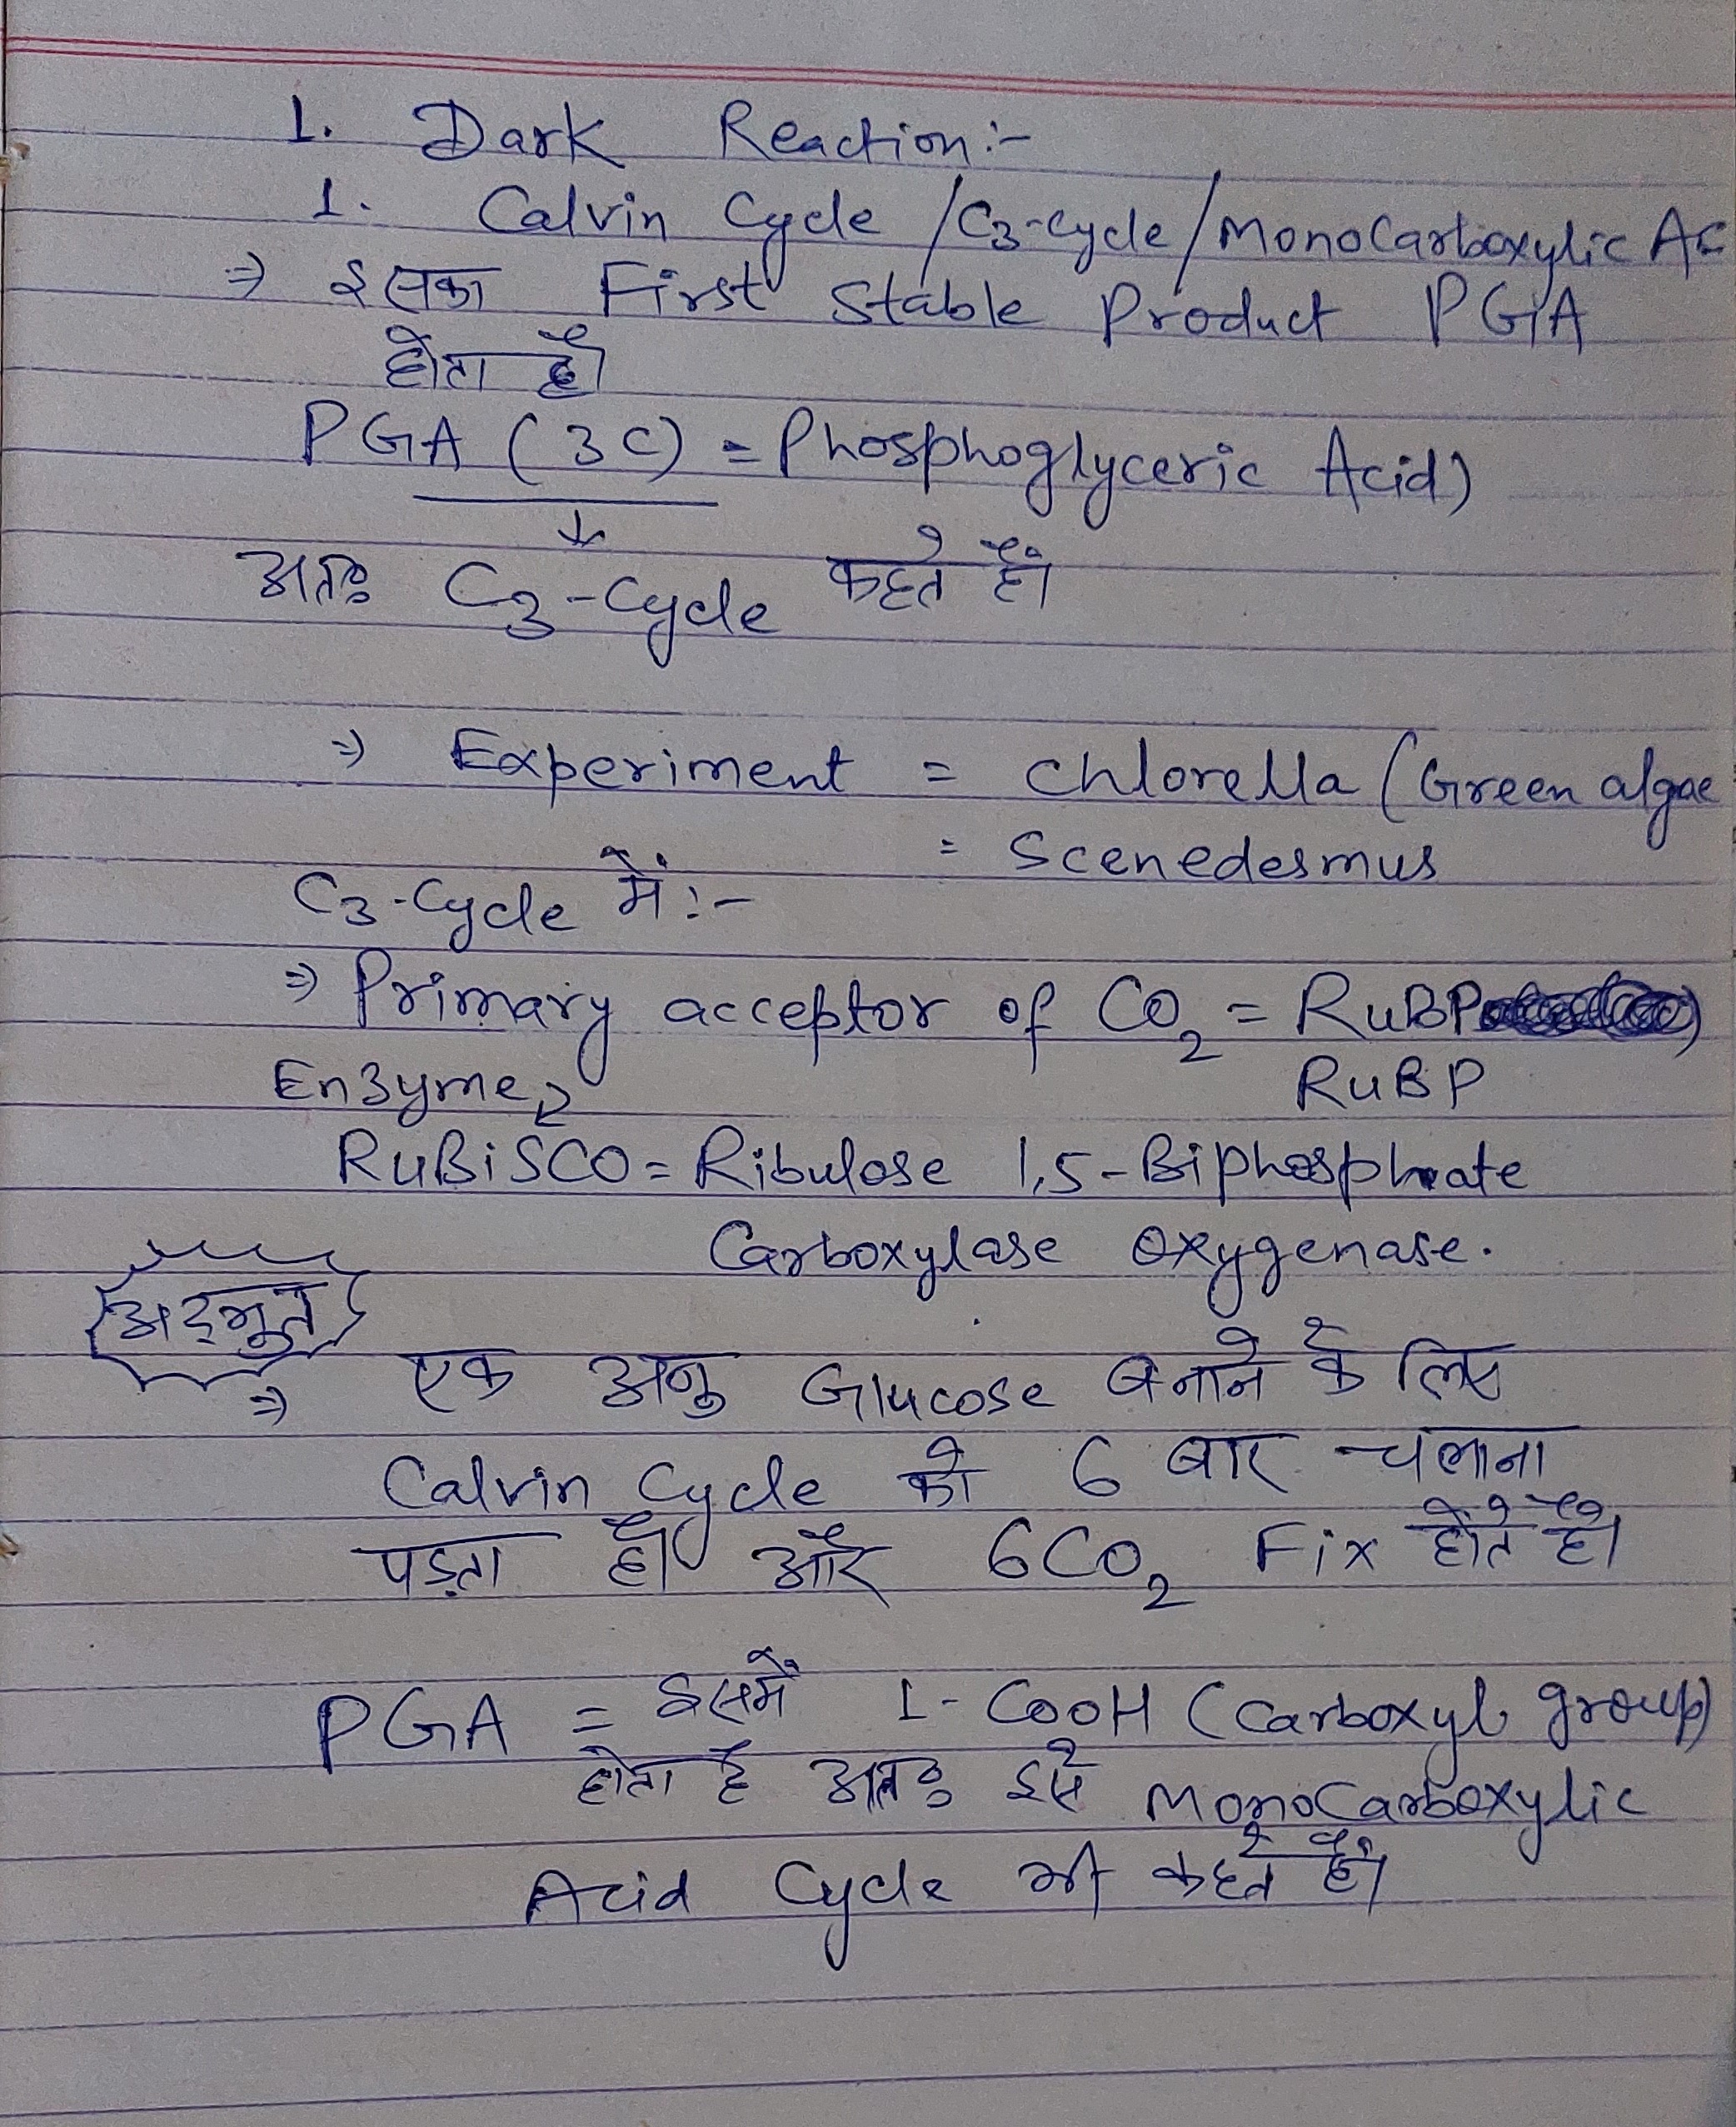 1. Dark Reaction:-
1. Calvin Cycle / C3-cycle / MonoCarboxylic Ac
⇒ इसका First Stable Product PGA
होता है।
PGA (3C) = Phosphoglyceric Acid)
↓
अतः C3-Cycle कहते हैं।
⇒ Experiment = Chlorella (Green algae
= Scenedesmus
C3-Cycle में :-
⇒ Primary acceptor of CO2 = RuBP
Enzyme RuBP
RuBiSCO = Ribulose 1,5-Biphosphate
Carboxylase Oxygenase.
अद्भुत
⇒ एक अनु Glucose बनाने के लिए
Calvin Cycle को 6 बार चलाना
पड़ता है। और 6CO2 Fix होते है।
PGA = इसमें 1-COOH (Carboxyl group)
होता है अतः इसे MonoCarboxylic
Acid Cycle भी कहते है।